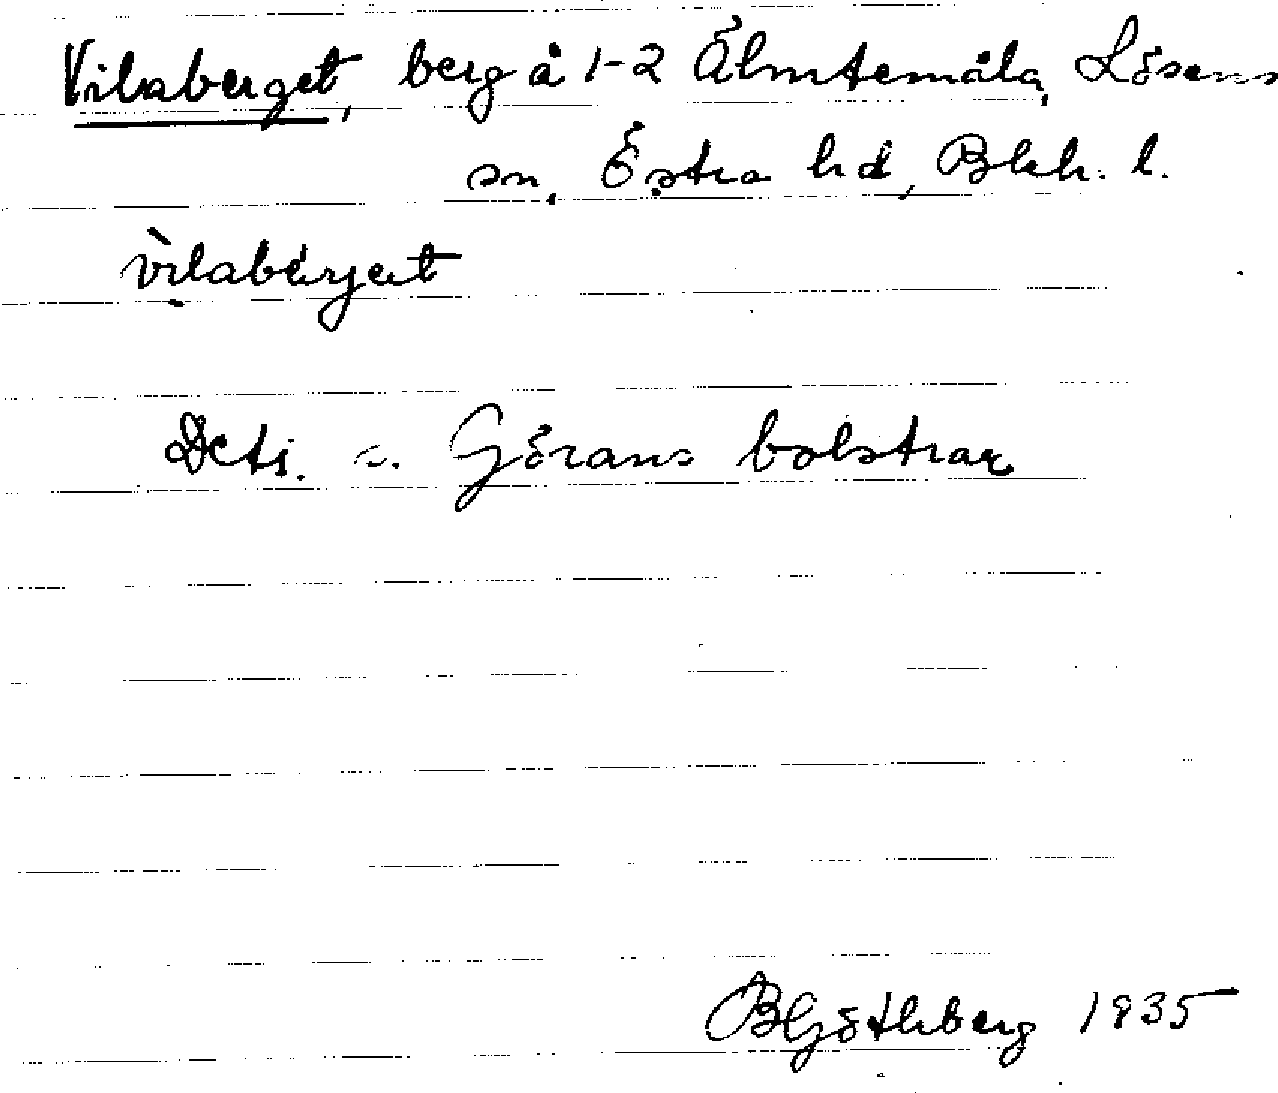 Vilaberget, berg å 1-2 Älmtemåla, Lösens
sn, Östra hd, Blek. l.
vìlabérjet
Dets. s. Görans bolstrar
BGöthberg 1935